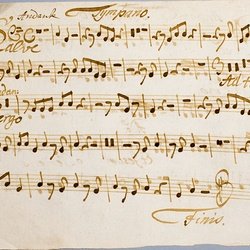 Andante Tympano.
Salve
Ad te
ergo
Finis.